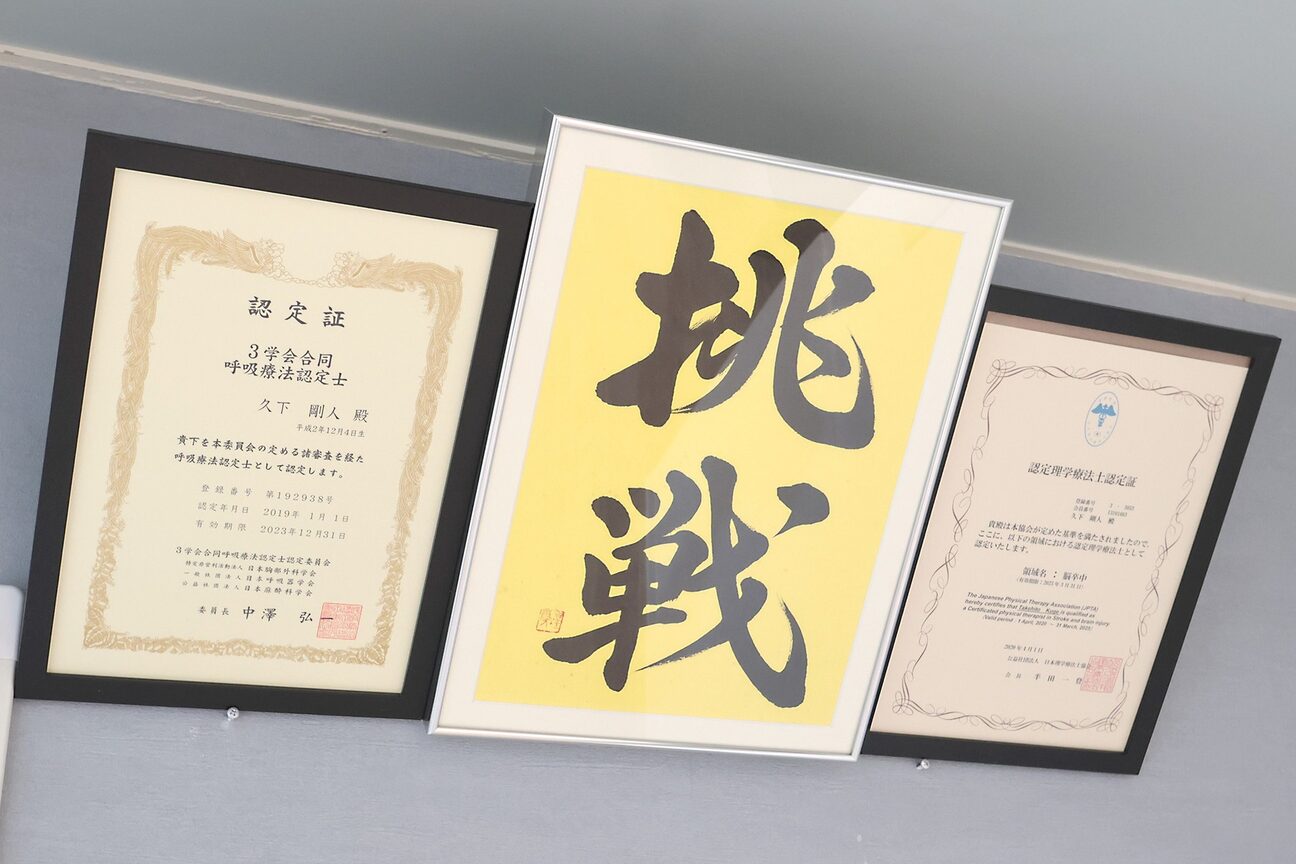 認定証
3学会合同
呼吸療法認定士
久下 剛人 殿
平成2年12月4日生
貴下を本委員会の定める諸審査を経た
呼吸療法認定士として認定します。
登録番号 第192938号
認定年月日 2019年 1月 1日
有効期限 2023年12月31日
3学会合同呼吸療法認定士認定委員会
特定非営利活動法人 日本胸部外科学会
一般社団法人 日本呼吸器学会
公益社団法人 日本麻酔科学会
委員長 中澤 弘一
挑
戦
認定理学療法士認定証
登録番号
会員番号
久下 剛人 殿
貴殿は本協会が定めた基準を満たされましたので、
ここに、以下の領域における認定理学療法士として
認定いたします。
領域名：脳卒中
(有効期限：2025年3月31日)
The Japanese Physical Therapy Association (JPTA)
hereby certifies that Takehito Kuge is qualified as
a Certificated physical therapist in Stroke and brain injury
(Valid period : 1 April, 2020 ~ 31 March, 2025)
2020年4月1日
公益社団法人 日本理学療法士協会
会長 半田 一登